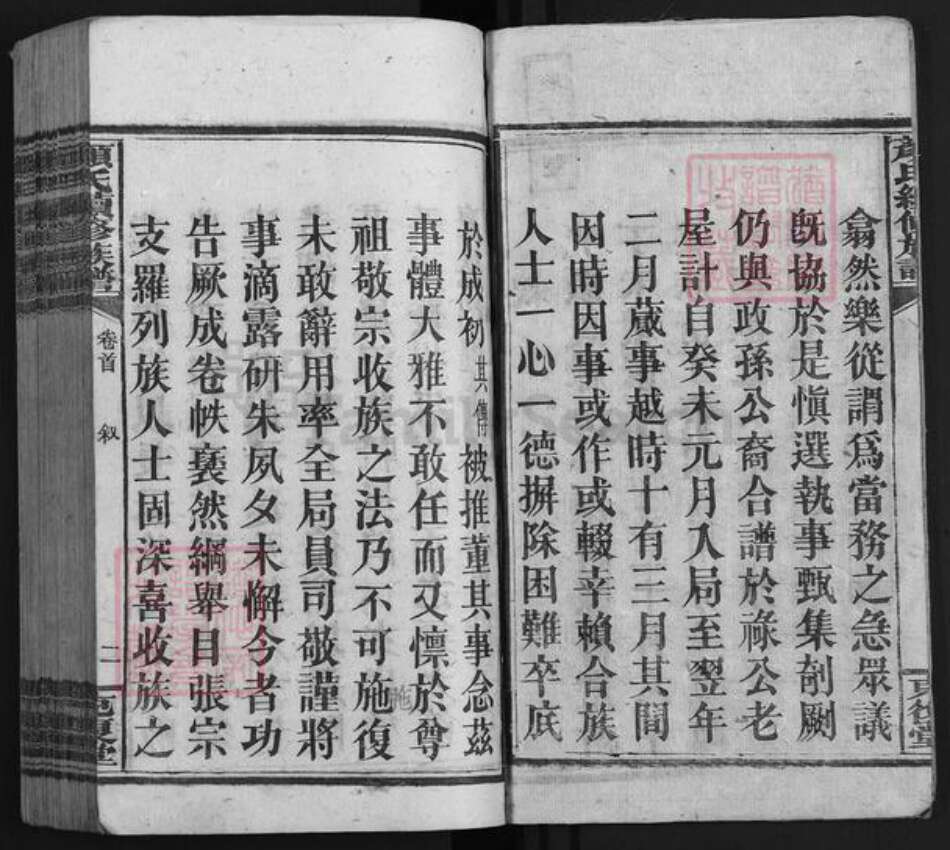 翕然樂從謂爲當務之急眾議
既協於是愼選執事甄集剞劂
仍與政孫公裔合譜於祿公老
屋計自癸未元月入局至翌年
二月蕆事越時十有三月其間
因時因事或作或輟幸賴合族
人士一心一德摒除困難卒底
於成初其傳被推董其事念茲
事體大雅不敢任而又懍於尊
祖敬宗收族之法乃不可施復
未敢辭用率全局員司敬謹將
事滴露研朱夙夕未懈今者功
告厥成卷帙裒然綱舉目張宗
支羅列族人士固深喜收族之
顏氏續修族譜
卷首
叙
二